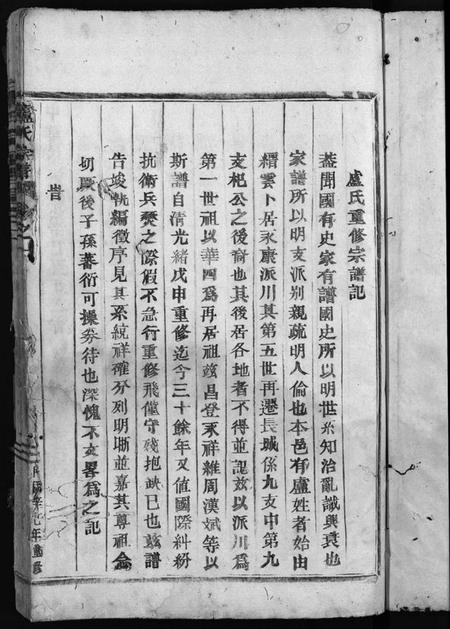 盧氏重修宗譜記
蓋聞國有史家有譜國史所以明世系知治亂識興衰也
家譜所以明支派别親疏明人倫也本邑有盧姓者始由
縉雲卜居永康派川其第五世再遷長城係九支中第九
支杞公之後裔也其後居各地者不得並認兹以派川爲
第一世祖以華四爲再居祖兹昌登永祥雜周漢斌等以
斯譜自清光緒戊申重修迄今三十餘年又值國際糾紛
抗衛兵燹之際假不急行重修飛僅守残抱缺已也兹譜
告竣執編徵序見其系統祥確分列明晰並嘉其尊祖
切厥後子孫蕃衍可操券待也深愧不文畧爲之記
旹
盧氏宗譜